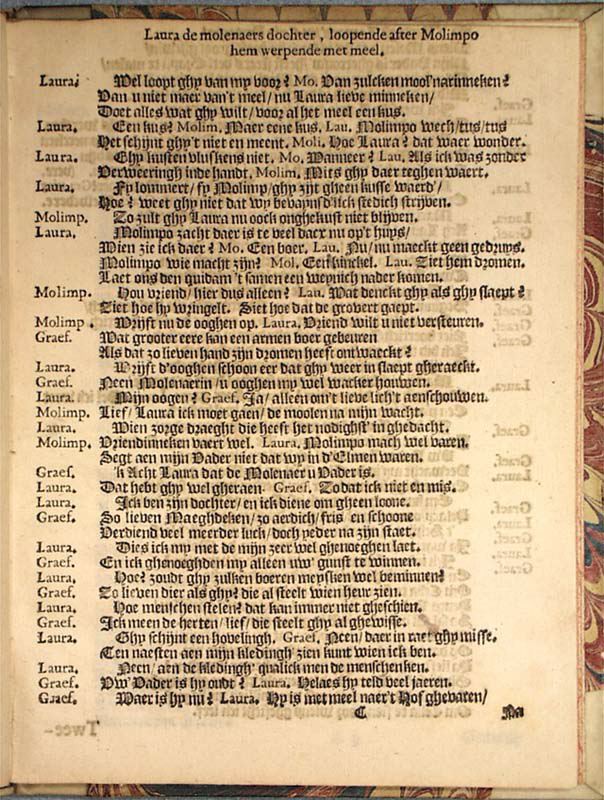 Laura de molenaers dochter, loopende after Molimpo
hem werpende met meel.
Laura. Wel loopt ghy van my voor? Mo. Van zulcken mool'narinneken?
Van u niet maer van't meel/ nu Laura lieve minneken/
Doet alles wat ghy wilt/ voor al het meel een kus.
Laura. Een kus? Molim. Maer eene kus, Lau. Molimpo wech/tus/tus
Het schijnt ghy't niet en meent. Moli. Hoe Laura? dat waer wonder.
Laura. Ghy kusten vluskens niet. Mo. Wanneer? Lau. Als ick was zonder
Verweeringh inde handt. Molim. Mits ghy daer teghen waert.
Laura. Fy lommert/ fy Molimp/ghy zijt gheen kusse waerd'/
Hoe? weet ghy niet dat wy bevajnsd'lick stedich strijven.
Molimp. Zo zult ghy Laura nu oock onghekust niet blijven.
Laura. Molimpo zacht daer is te veel daer nu op't hups/
Wien zie ick daer? Mo. Een boer. Lau. Nu/nu maeckt geen gedruys.
Molimpo wie macht zijn? Mol. Een kinckel. Lau. Ziet hem dromen.
Laet ons den guidam 't samen een weynich nader komen.
Molimp. Hou vriend/ hier dus alleen? Lau. Wat denckt ghy als ghy slaept?
Ziet hoe hy wringelt. Siet hoe dat de grovert gaept.
Molimp. Wrijft nu de ooghen op. Laura. Vriend wilt u niet versteuren.
Graef. Wat grooter eere kan een armen boer gebeuren
Als dat zo lieven hand zijn dromen heeft ontwaeckt?
Laura. Wrijft d'ooghen schoon eer dat ghy weer in slaept gheraeckt.
Graef. Neen Molenaerin/ u ooghen my wel wacker houwen.
Laura. Mijn oogen? Graef. Ja/ alleen om't lieve lich't aenschouwen.
Molimp. Lief/ Laura ick moet gaen/ de moolen na mijn wacht.
Laura. Wien zorge draeght die heeft het nodighst' in ghedacht.
Molimp. Vriendinneken vaert wel. Laura. Molimpo mach wel varen.
Segt aen mijn Vader niet dat wy in d'Elmen waren.
Graef. 'k Acht Laura dat de Molenaer u Vader is.
Laura. Dat hebt ghy wel gheraen. Graef. Zo dat ick niet en mis.
Laura. Ick ben zijn dochter/ en ick diene om gheen loone.
Graef. So lieven Maeghdeken/ zo aerdich/ fris en schoone
Verdiend veel meerder luck/ doch yeder na zijn staet.
Laura. Dies ick my met de mijn zeer wel ghenoeghen laet.
Graef. En ick ghenoeghden my alleen uw' gunst te winnen.
Laura. Hoe? zoudt ghy zulken boeren meysken wel beminnen?
Graef. Zo lieven dier als ghy? die al steelt wien heur zien.
Laura. Hoe menschen stelen? dat kan immer niet gheschien.
Graef. Ick meen de herten/ lief/ die steelt ghy al ghewisse.
Laura. Ghy schijnt een hovelingh. Graef. Neen/ daer in raet ghy misse.
Ten naesten aen mijn kledingh zien kunt wien ick ben.
Laura. Neen/ aen de kledingh' qualick men de menschen ken.
Graef. Vw' Vader is hy oudt? Laura. Helaes hy teld veel jaeren.
Graef. Waer is hy nu? Laura. Hy is met meel naer't Hof ghevaren/
C Na
Twee-